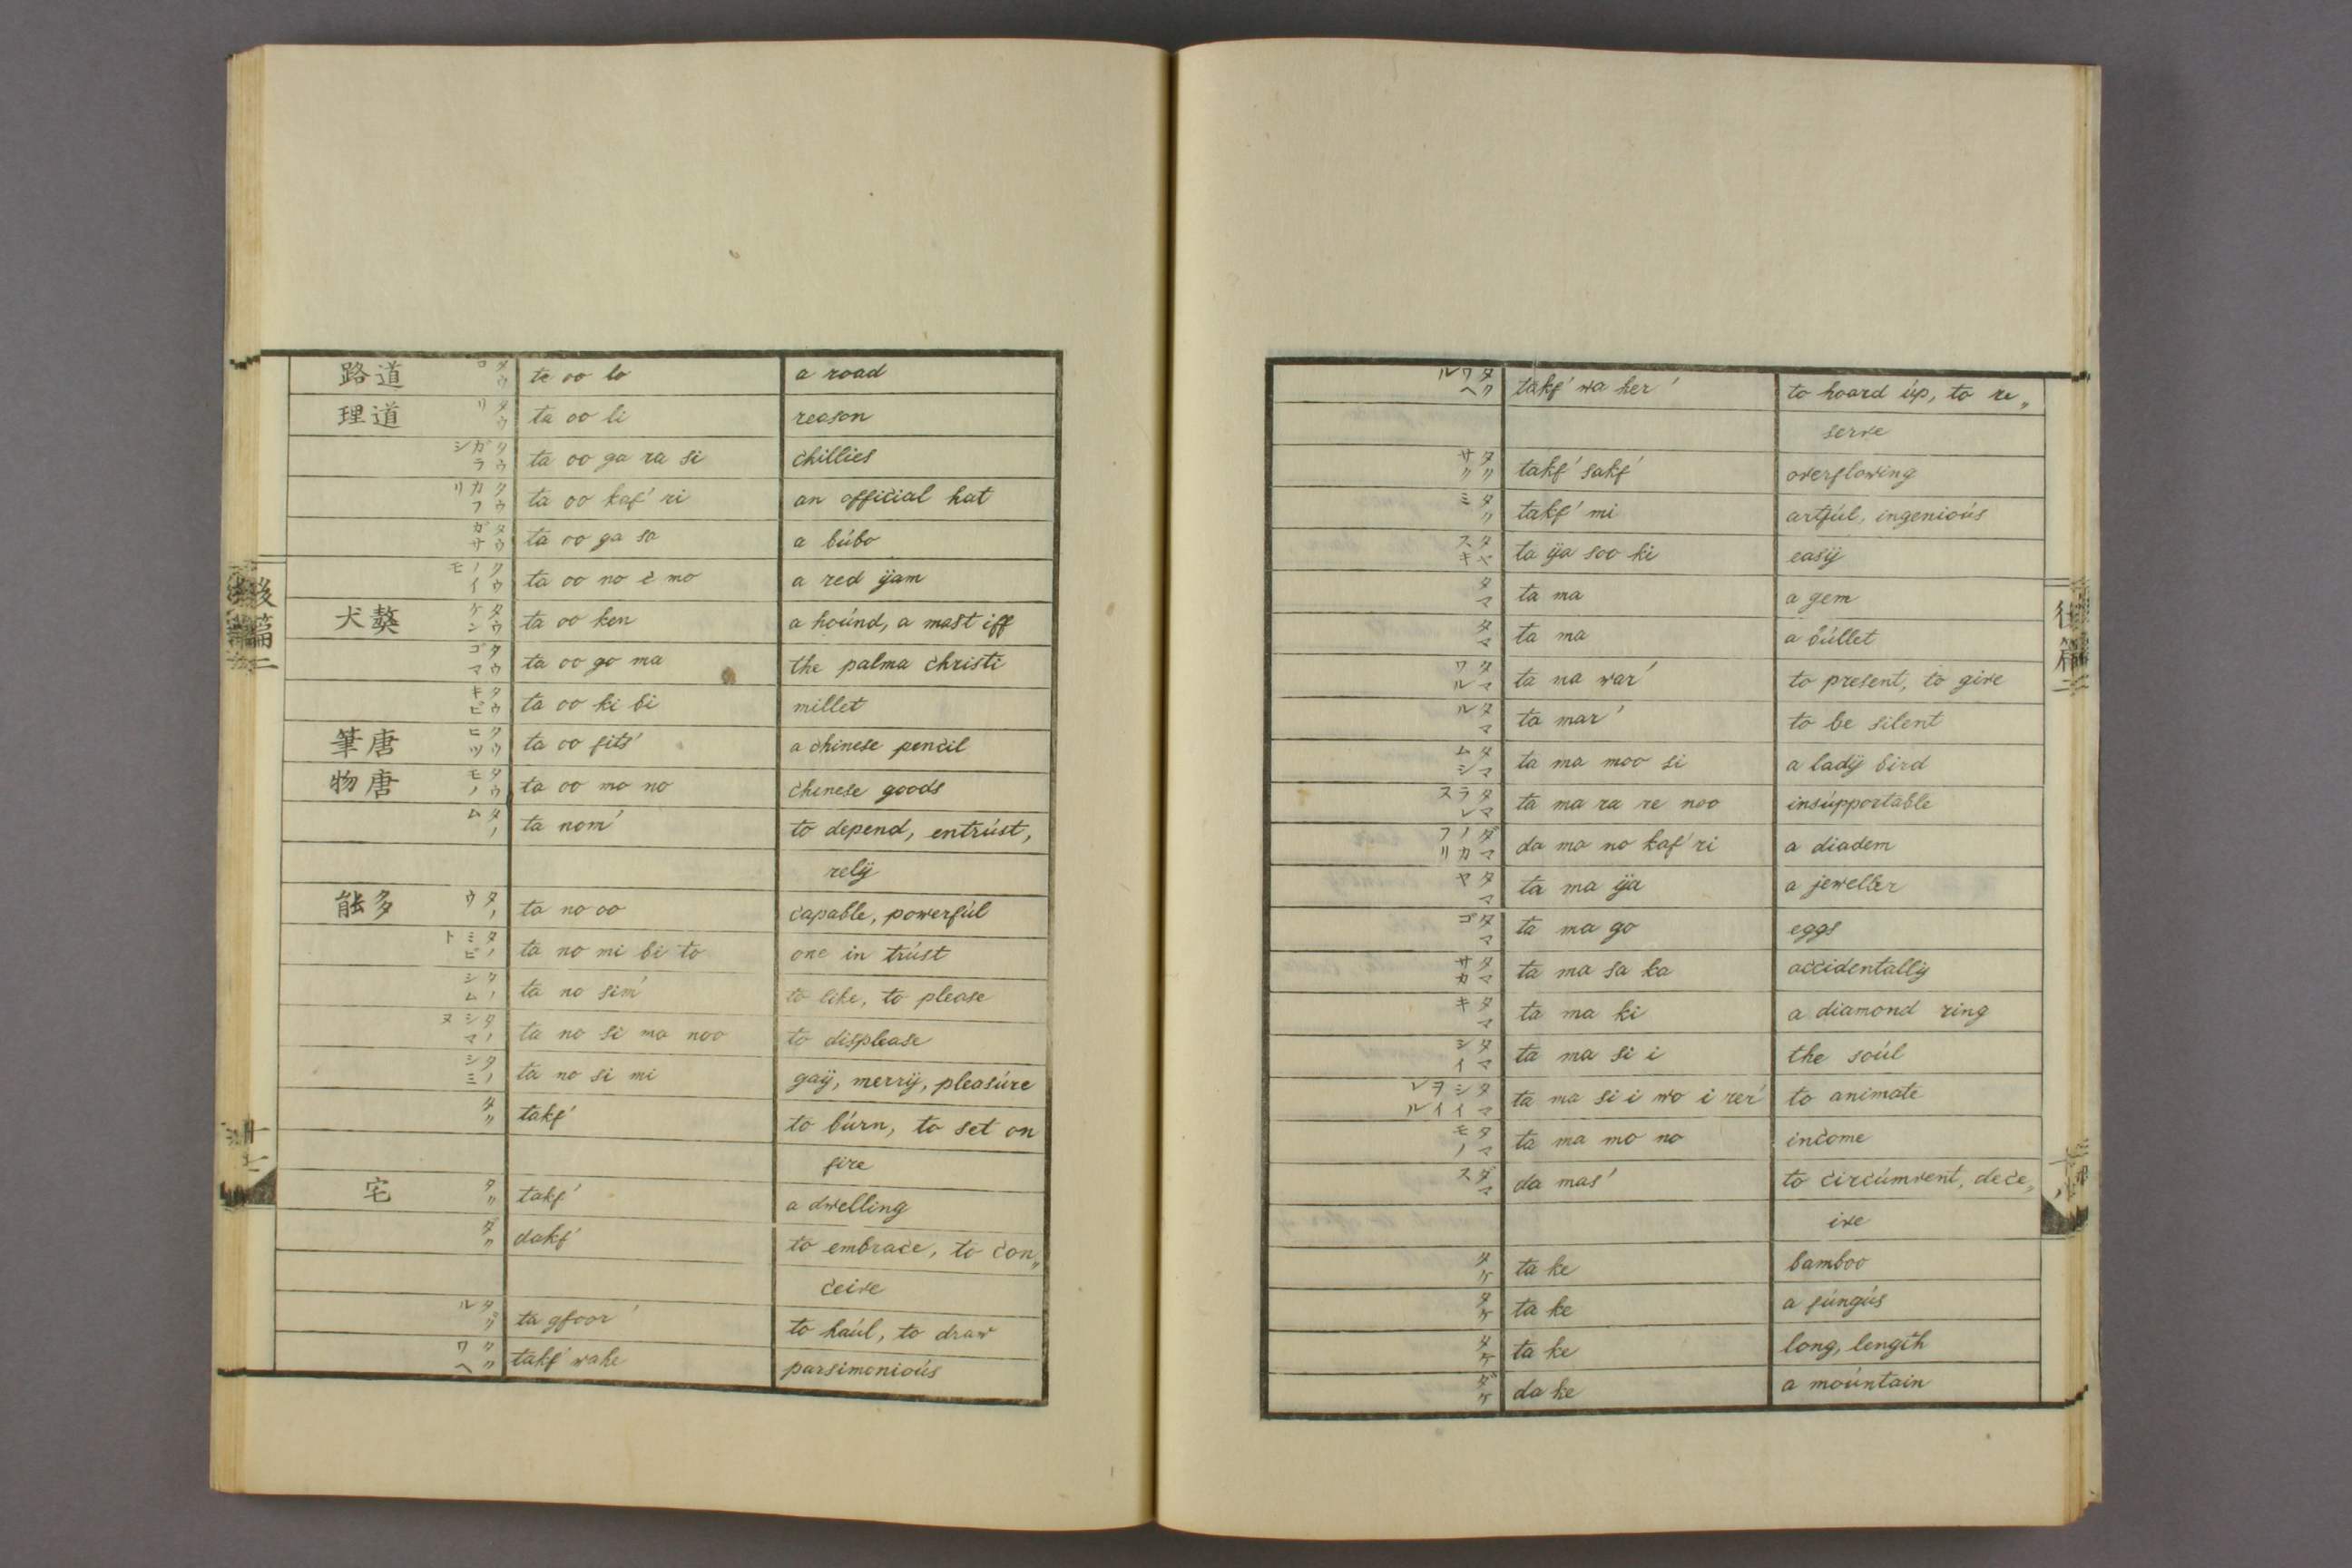 路道 タウロ te oo lo a road
理道 タウリ ta oo li reason
タウガラシ ta oo ga ra si chillies
タウカフリ ta oo kaf' ri an official hat
タウガサ ta oo ga sa a búbo
タウノイモ ta oo no i mo a red ÿam
犬獒 タウケン ta oo ken a hoúnd, a mast iff
タウゴマ ta oo go ma the palma christi
タウキビ ta oo ki bi millet
筆唐 タウヒツ ta oo fits' a chinese pencil
物唐 タウモノ ta oo mo no chinese goods
タノム ta nom' to depend, entrúst,
relÿ
能多 タノウ ta no oo capable, powerfúl
タノミビト ta no mi bi to one in trúst
タノシム ta no sim' to like, to please
タノシマヌ ta no si ma noo to displease
タノシミ ta no si mi gaÿ, merrÿ, pleasúre
タク takf' to búrn, to set on
fire
宅 タク takf' a dwelling
ダク dakf' to embrace, to con〃
ceive
タグル ta gfoor' to haúl, to draw
タクワヘ takf' wahe parsimonioús
後篇二
十七
タクワヘル takf' wa her' to hoard úp, to re〃
serve
タクサク takf' sakf' overflowing
タクミ takf' mi artfúl, ingenioús
タヤスキ ta ÿa soo ki easÿ
タマ ta ma a gem
タマ ta ma a búllet
タマワル ta na war' to present, to give
タマル ta mar' to be silent
タマムシ ta ma moo si a ladÿ bird
タマラレス ta ma ra re noo insúpportable
ダマノカフリ da ma no kaf' ri a diadem
タマヤ ta ma ÿa a jeweller
タマゴ ta ma go eggs
タマサカ ta ma sa ka accidentallÿ
タマキ ta ma ki a diamond ring
タマシイ ta ma si i the soúl
タマシイヲイレル ta ma si i wo i rer' to animate
タマモノ ta ma mo no income
ダマス da mas' to circúmvent, dece〃
ive
タケ ta ke bamboo
タケ ta ke a fúngús
タケ ta ke long, length
ダケ da ke a moúntain
後篇二